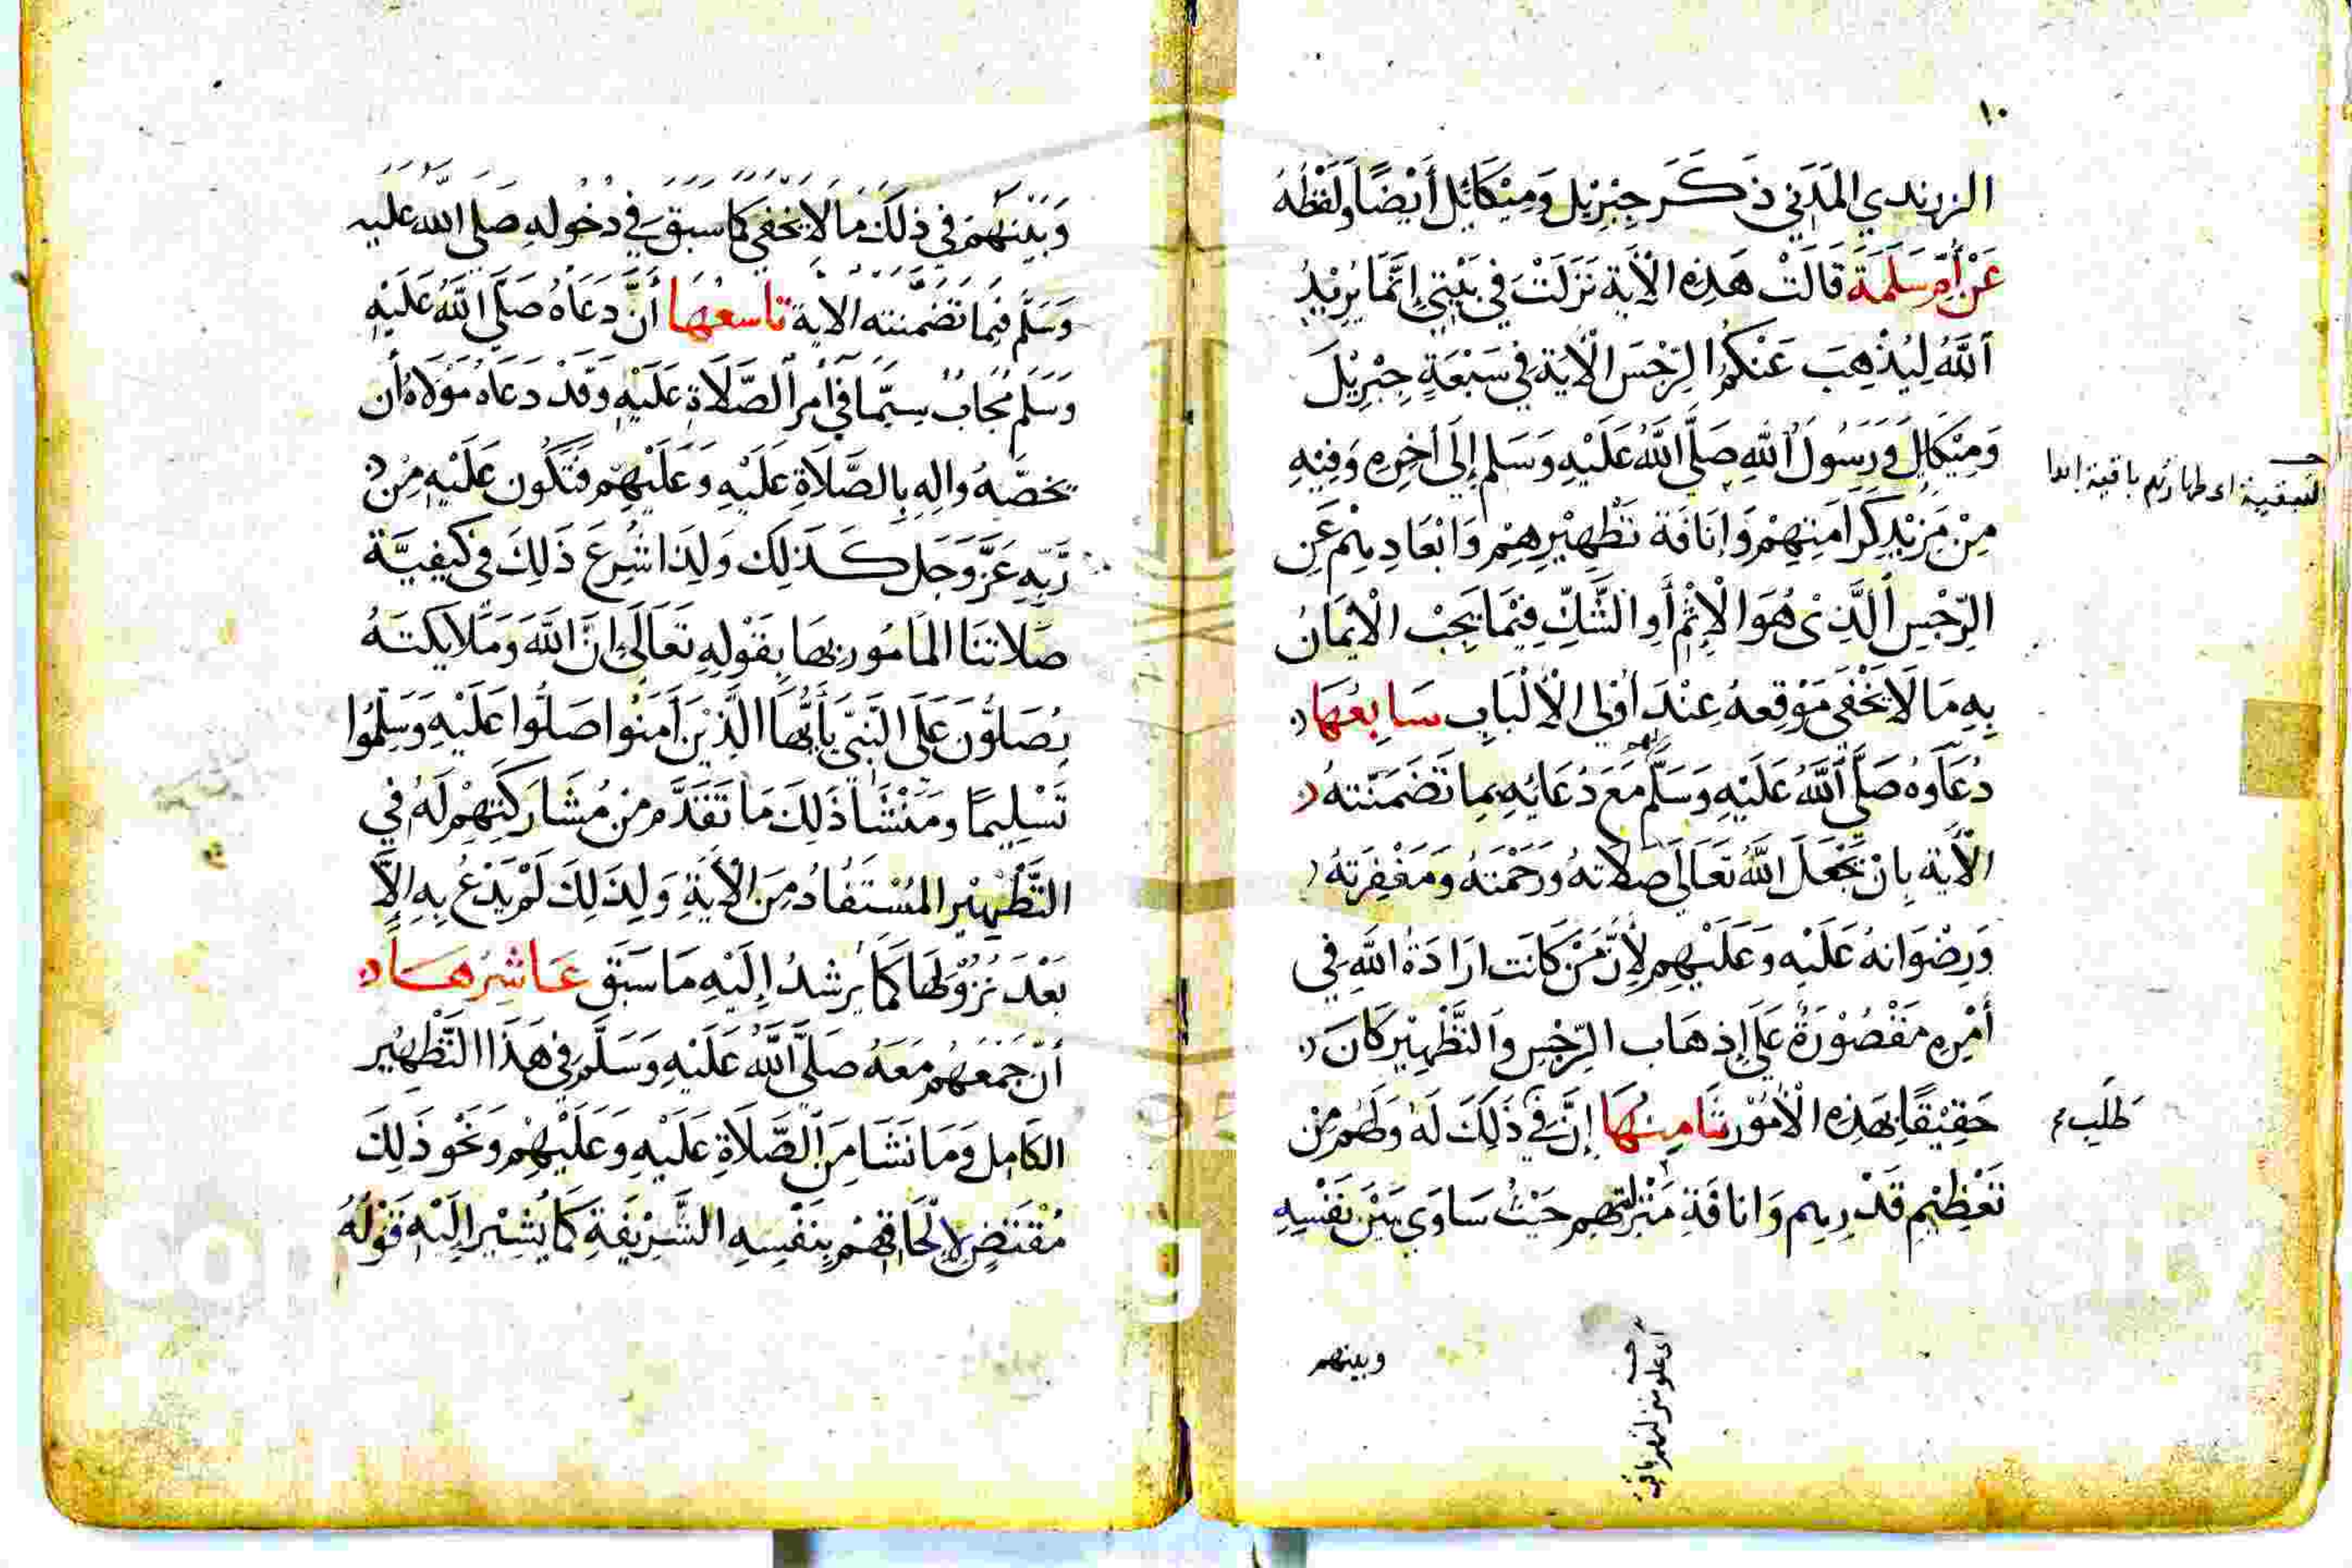 ١٠
الزرندي المَدَني ذَكَرَ جِبْرِيْل وَمِيْكَائيل أَيْضًا وَلَفْظُهُ
عَنْ أُمِّ سَلَمَةَ قَالَتْ هَذِهِ الْآيَة نَزَلَتْ فِي بَيْتِي إِنَّمَا يُرِيْدُ
اَللَّهُ لِيُذْهِبَ عَنْكُمُ الرِّجْسَ الْآيَةَ فِي سَبْعَةٍ جِبْرِيْلَ
وَمِيْكَائِلَ وَرَسُولَ اللَّهِ صَلَّى اللَّهُ عَلَيْهِ وَسَلم إِلَى اٰخِرِهِ وَفِيْهِ
مِنْ مَزِيْدِ كَرَامَتِهِمْ وَإنَافَة تَطْهِيْرِهِمْ وَابْعَادِهِمْ عَنِ
الرِّجْسِ الَّذِيْ هُوَ الْإِثْمُ أَوِ الشَّكِّ فِيْمَا يَجِبُ الْاِيْمَانُ
بِهِ مَا لَا يَخْفَى مَوْقِعهُ عِنْدَ أُوْلِي الْأَلْبَابِ سَابِعُهَا
دُعَاوُهُ صَلَّى اللَّهُ عَلَيْهِ وَسَلَّمَ لهم مَعَ دُعَائِهِ بِمِا تَضَمَنَتهُ
الْآيَة بِانْ يَجْعَلَ اللَّهُ تَعَالَى صَلَاتَهُ وَرَحْمَتَهُ وَمَغْفِرَتهُ
وَرِضْوَانهُ عَلَيْهِ وَعَلَيْهِم لِأَنَّ مَنْ كَانَت ارَادَةُ اللَّهِ فِي
أَمْرِهِ مَقْصُوْرَةً عَلَى إِذهَاب الرِّجْسِ وَالتَّطْهِيْر كَانَ
حَقِيْقًا بِهَذِهِ الْأُمُوْر ثَامِنُهَا إِنَّ فِي ذَلِكَ لَهُ وَلَهُم مِنْ
تَعْظِيْمِ قَدْرِهِم وَانافَةِ مَنْزِلَتِهِم حَيْثُ سَاوَى بَيْنَ نَفْسِهِ
وبينهم
اى طهارتهم باقية ابدا
طَلَب
اى علو منزلتهم
وَبَيْنَهُمْ فِي ذلكَ مَا لَا يَخْفَى كَمَا سبق فِي دخولهِ صَلى اللَّه عليه
وَسَلَّم فِيمَا تَضَمَّنَته الايَة تَاسعُهَا أَنَّ دَعَاهُ صَلَّى اللَّهُ عَلَيْهِ
وَسَلم مُجَابٌ سِيَّمَا فِي أَمر الصَّلَاةِ عَلَيْهِ وَقَدْ دَعَاهُ مَوْلَاهُ أَن
يَخصَّهُ وَالِهِ بِالصَّلَاةِ عَلَيْهِ وَعَلَيْهِم فَتَكُون عَلَيْهِ مِنْ
رَّبِّهِ عَزَّ وَجَل كَذلِكَ وَلِذَا شُرِعَ ذَلِكَ فِي كَيْفِيَّة
صَلَاتِنَا المَامُور بِهَا بِقَوْلِهِ تَعَالَى إِنَّ اللَّهَ وَمَلَايكَتَهُ
يُصَلُّوْنَ عَلَى النَّبِيِّ يَأَيُّهَا الَّذِيْنَ اَمَنُوا صَلُّوا عَلَيْهِ وَسَلِّمُوا
تَسْلِيمًا وَمَنْشَا ذَلِكَ مَا تَقَدَّم مِن مُشَارَكَتِهِمْ لَهُ فِي
التَّطْهِيْرِ المُسْتَفَاد مِنَ الْاَيَةِ وَلِذَلِكَ لَمْ يَدْعُ بِهِ إِلَّا
بَعْدَ نُزُوْلِهَا كَمَا يُرشدُ إِلَيْهِ مَا سَبَقَ عَاشِرُهَا
أَنَّ جَمْعَهُم مَعَهُ صَلَّى اللَّهُ عَلَيْهِ وَسَلَّمَ فِي هَذَا التَّطْهِيْرِ
الكَامِل وَمَا نَشَا مِنَ الصَّلَاةِ عَلَيْهِ وَعَلَيْهِمْ وَنَحْو ذَلِكَ
مُقْتَضٍ لِإِلْحَاقِهِمْ بِنَفْسِهِ الشَّرِيْفَةِ كَمَا يُشِيْر إِلَيْهِ قَوْلُهُ